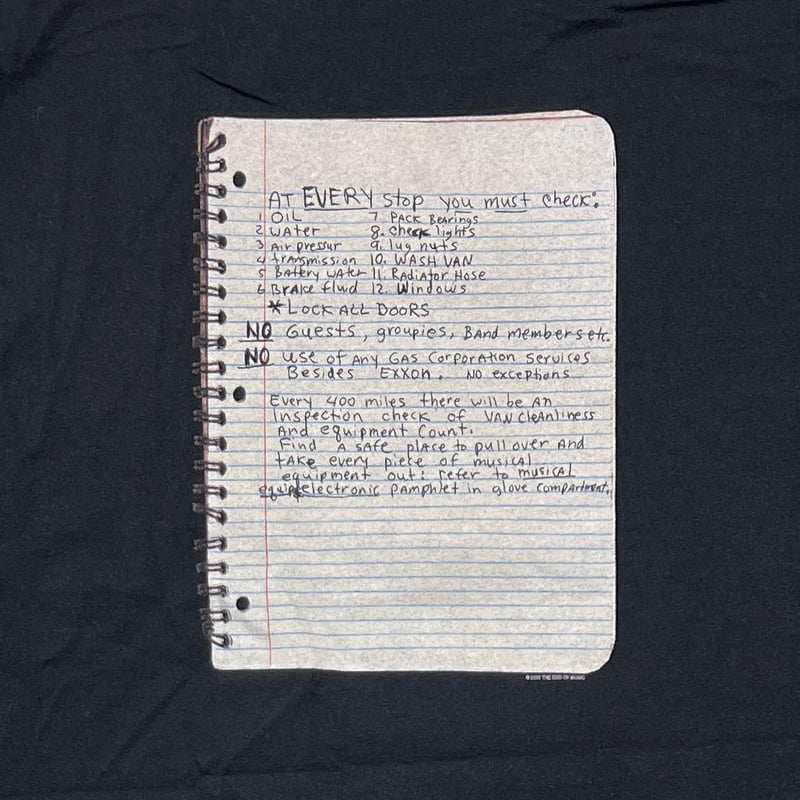 AT EVERY stop you must check:
1 OIL 7. PACK Bearings
2 water 8. check lights
3 Air pressur 9. lug nuts
4 transmission 10. WASH VAN
5 Battery water 11. Radiator Hose
6 Brake fluid 12. Windows
*LOCK ALL DOORS
NO Guests, groupies, Band members etc.
NO use of Any GAS Corporation services
Besides EXXON. NO exceptions
Every 400 miles there will be An
Inspection check of VAN cleanliness
And equipment Count.
Find A safe place to pull over And
take every piece of musical
equipment out: refer to musical
electronic pamphlet in glove compartment.
© 2020 THE END OF MUSIC